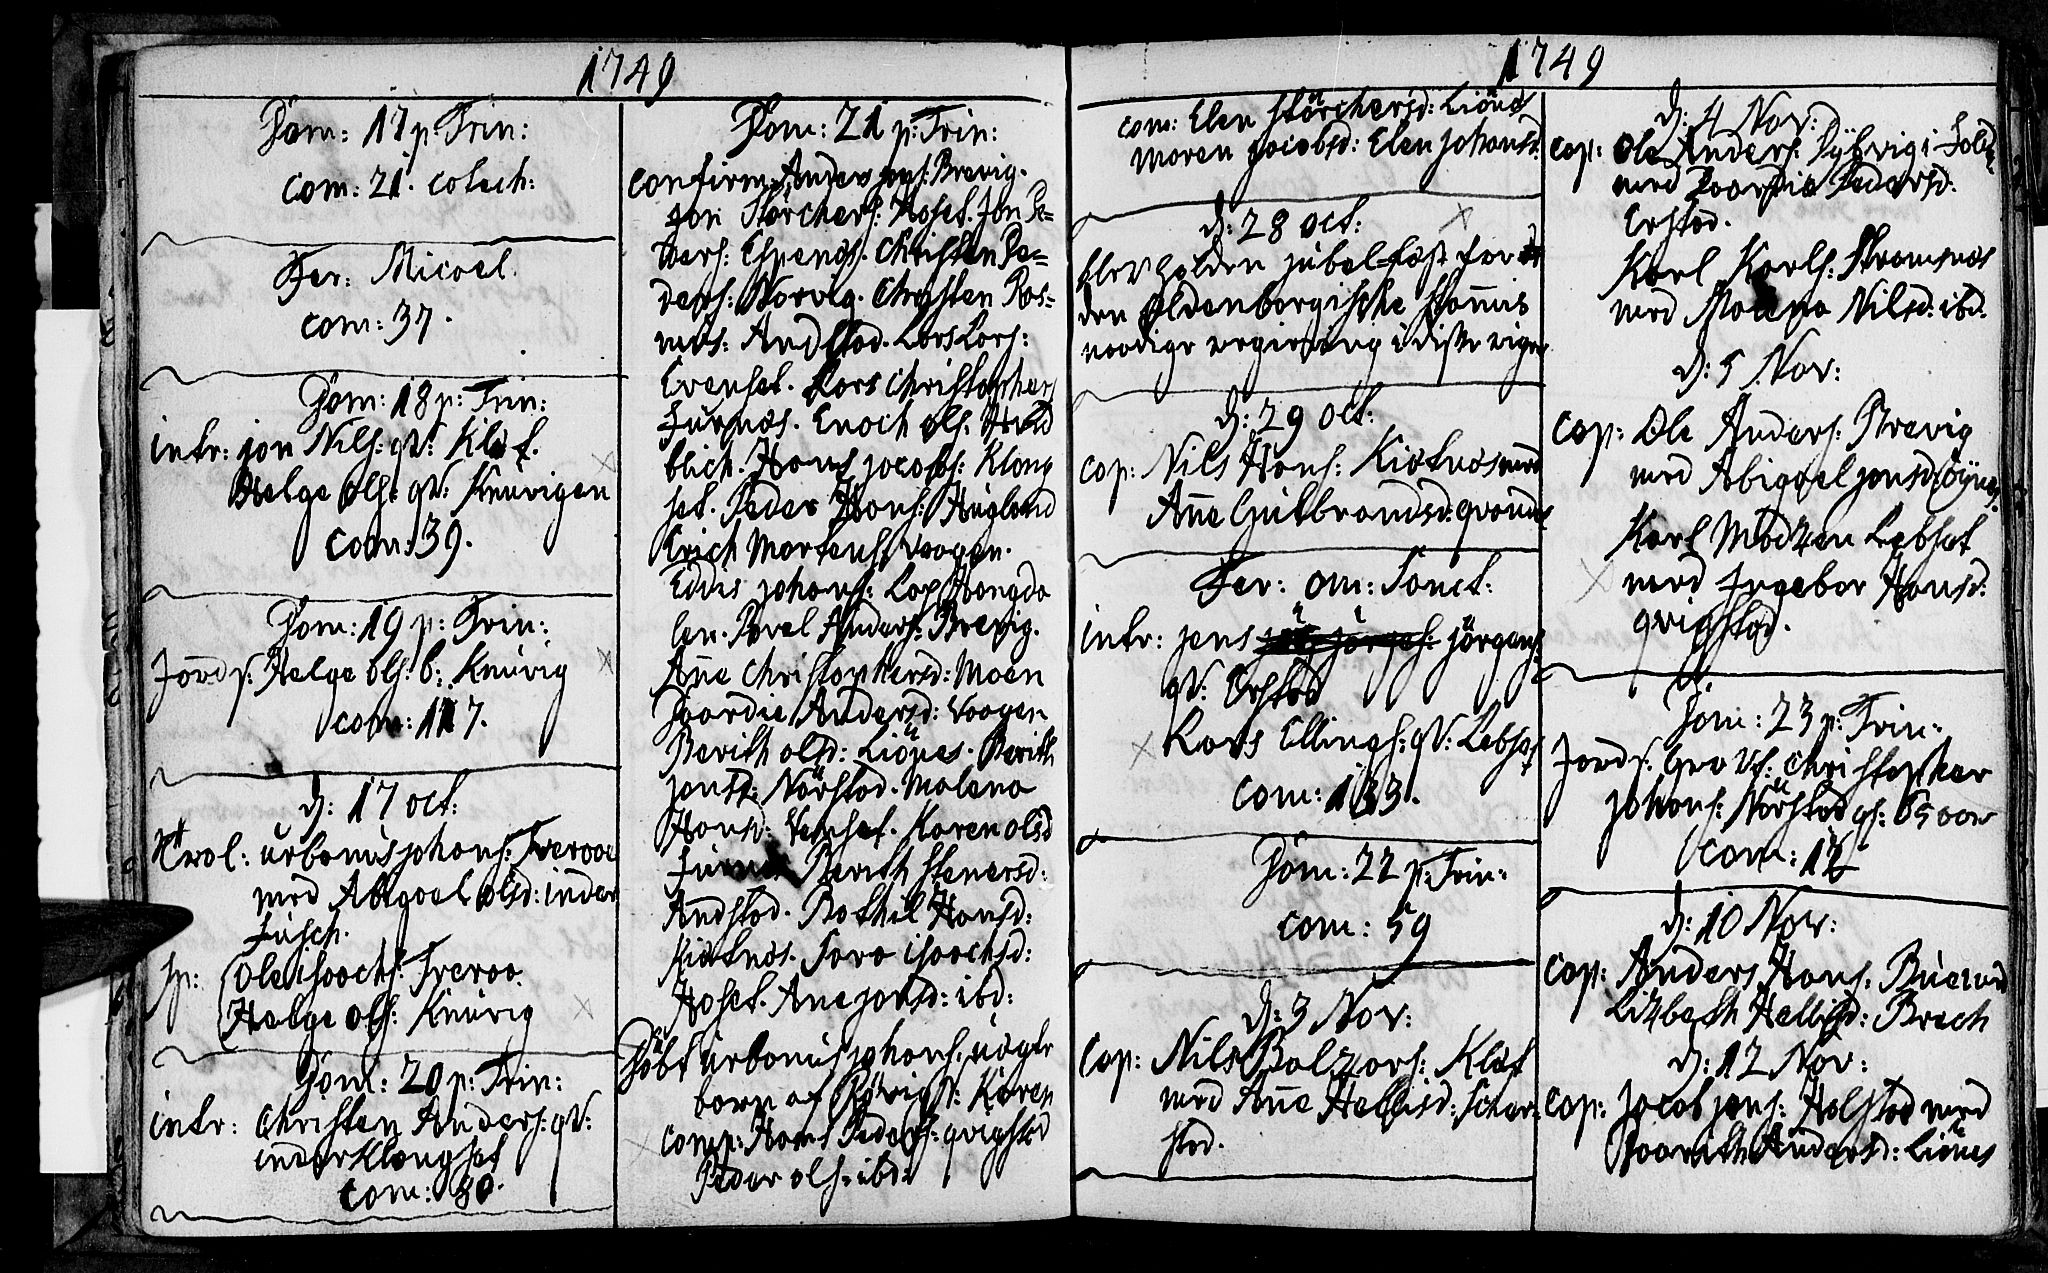 1749
Dom: 17 p: Trin:
com: 21. catech:
Fer: Micael.
com: 37.
Dom: 18 p: Trin:
intr: jon Nils: qV: Klæt.
Helge Ols: qV: Knuvigen
com: 39.
Dom: 19 p: Trin:
Jordf. Helge Ols: b: Knuvig
com: 117.
d: 17 oct:
Trol: urbanus johans: Tveraae
med Abigael olsd: inder
Fusch.
sp: Ole Isaachs: Tveraa
Helge Ols: Knuvig
Dom: 20 p: Trin:
intr: Christen Anders: qV:
inder Klongset
com: 80.
Dom: 21 p: Trin:
confirm. Anders jens: Brevig.
jon Störchers: Hoset. Jon Pe=
ders: Espenæs. Christen Pe=
ders: Norvig. Christen Ras=
mus: Andstad. Lars Lars:
Evenset. Lars Christophers
Furnæs. Enoch ols:
blich. Hans jacobs: Klong
set. Peder Hans: Hugland
Erich Mortens: Vaagan.
Eddis johans: Lap Hangda
len. Povel Anders: Brevig.
Añe Christophersd: Moen
Gaardie Andersd: Vaagan
Berith olsd: Liönes. Berith
jonsd: Nörstad. Malena
Hansd: Venset. Karen olsd
Furnæs Berith Stenersd:
Andstad. Bothil Hansd:
Kiætnæs. Tara isaachsd:
Hoset. Ane jonsd: ibd:
Döbt urbanus johans. uægte
barn af Röivig M: Karen
comp: Hans Peders: qvigstad
Peder ols: ibd:
1749
com: Elen Störchersd: Liönæs
Maren jacobsd: Elen johansd:
d: 28 oct:
blev holden jubel=fæst for
den Oldenborgische Stam̄is
naadige regiering i disse riger
d: 29 oct:
cop: Nils Hans: Kiætnæs med
Añe Gulbrandsd: qvanæs
Fer: om: Sanct:
intr: jens jörgens:
qV: Erstad
Lars Ellings: qV: Lebset
com: 133.
Dom: 22 p: Trin:
com: 59
d: 3 Nov:
cop: Nils Balzars: Klæt
med Añe Hellisd: Schar
stad.
d: 4 Nov:
cop: Ole Anders: Dybvig i Folden
med Gaardie Pedersd:
Erstad.
Karl Karls: Stramsnæs
med Malena Nilsd: ibd.
d: 5 Nov:
cop: Ole Anders: Brevig
med Abigael jonsd: Öynes.
Karl Madzen Lebset
med Ingebor Hansd:
qvigstad.
Dom: 23 p: Trin:
Jordf: Christopher
johans: Nörstad
com: 12
d: 10 Nov:
cop: Anders Hans:
Lizbeth Hellisd: Brech
d: 12 Nov:
cop: jacob jens: Halstad med
Gaarith Andersd: Liönes